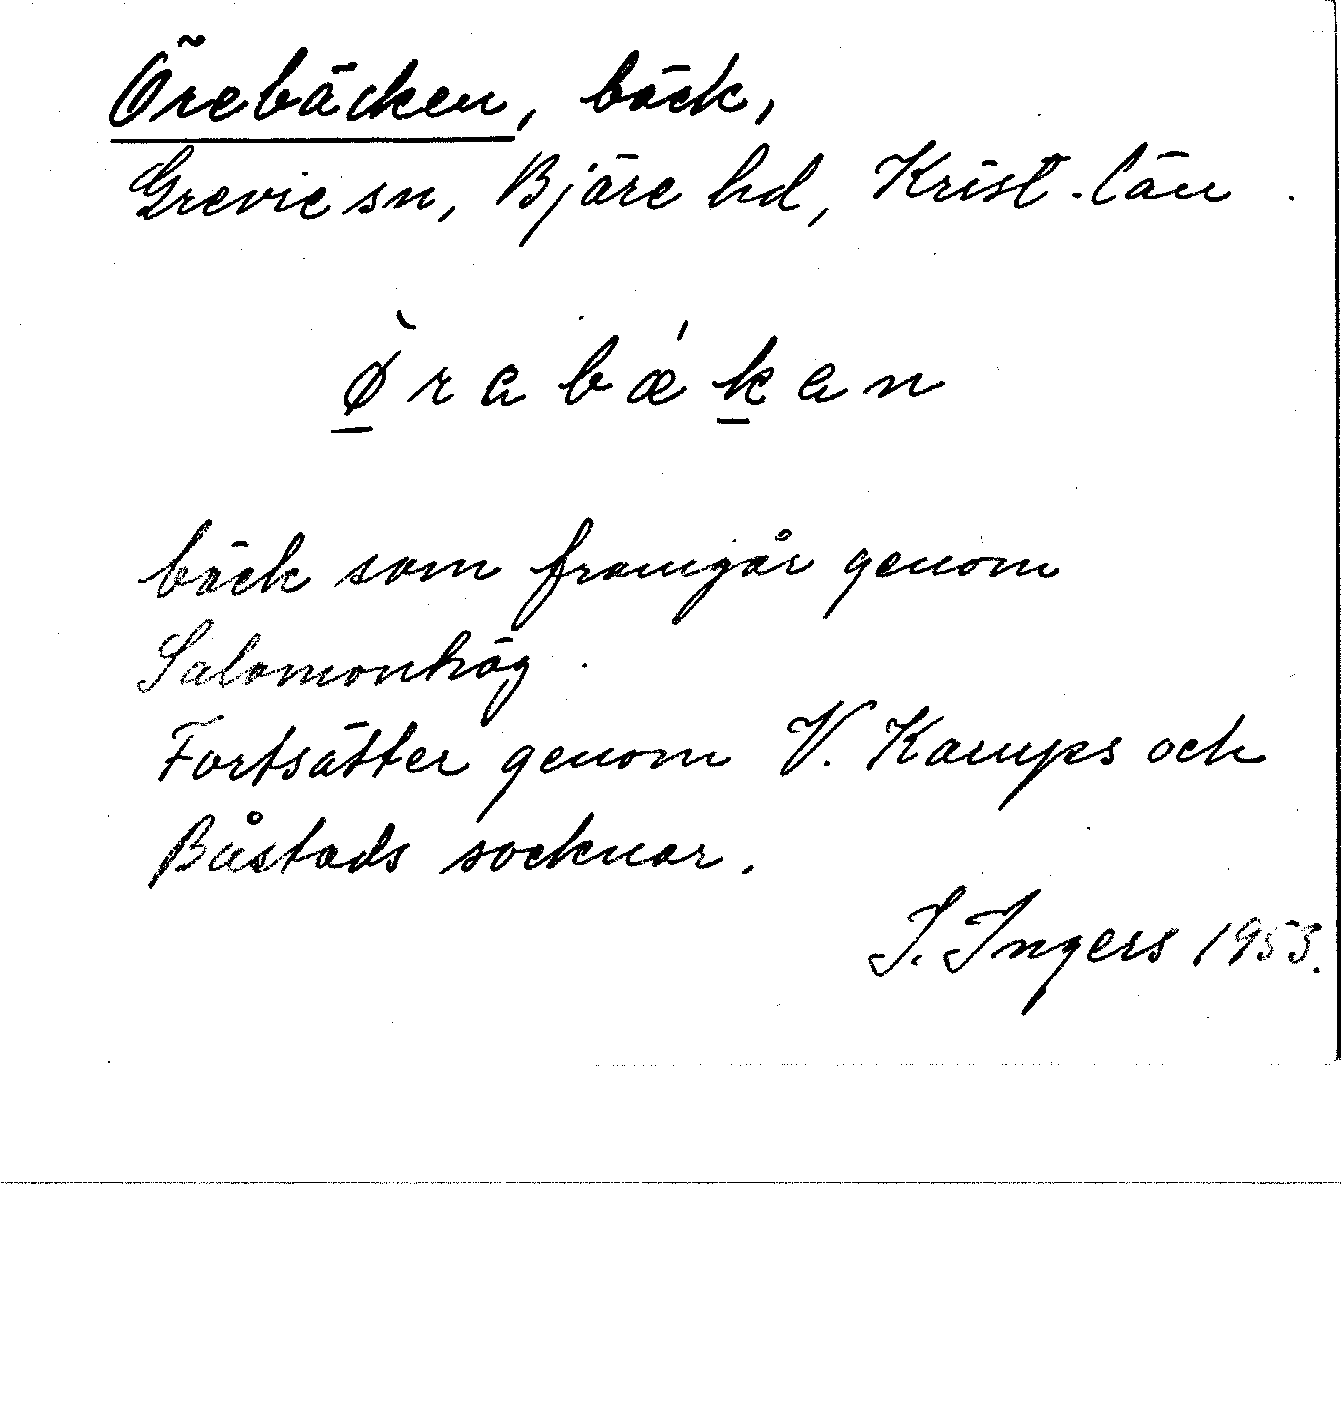 Örebäcken, bäck,
Grevie sn, Bjäre hd, Krist. län.
Ø̀rabǽkan
bäck som framgår genom
Salomonhög.
Fortsätter genom V. Karups och
Båstads socknar.
I. Ingers 1953.